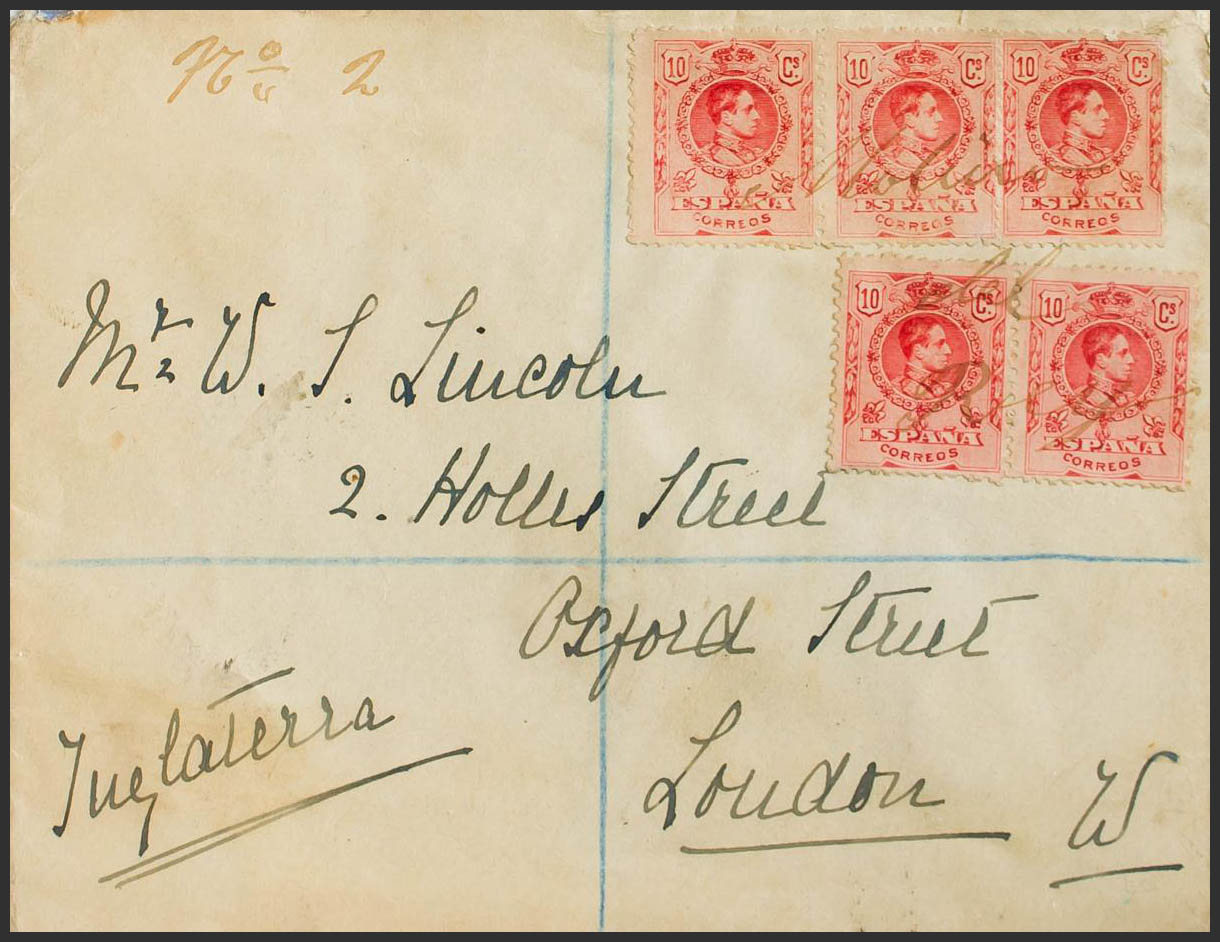 Nº 2
10 Cs.
10 Cs.
10 Cs.
ESPAÑA
CORREOS
ESPAÑA
CORREOS
ESPAÑA
CORREOS
Molins
del
Rey
10 Cs.
10 Cs.
ESPAÑA
CORREOS
ESPAÑA
CORREOS
Mr. W. S. Lincoln
2. Holles Street
Oxford Street
Inglaterra
London W